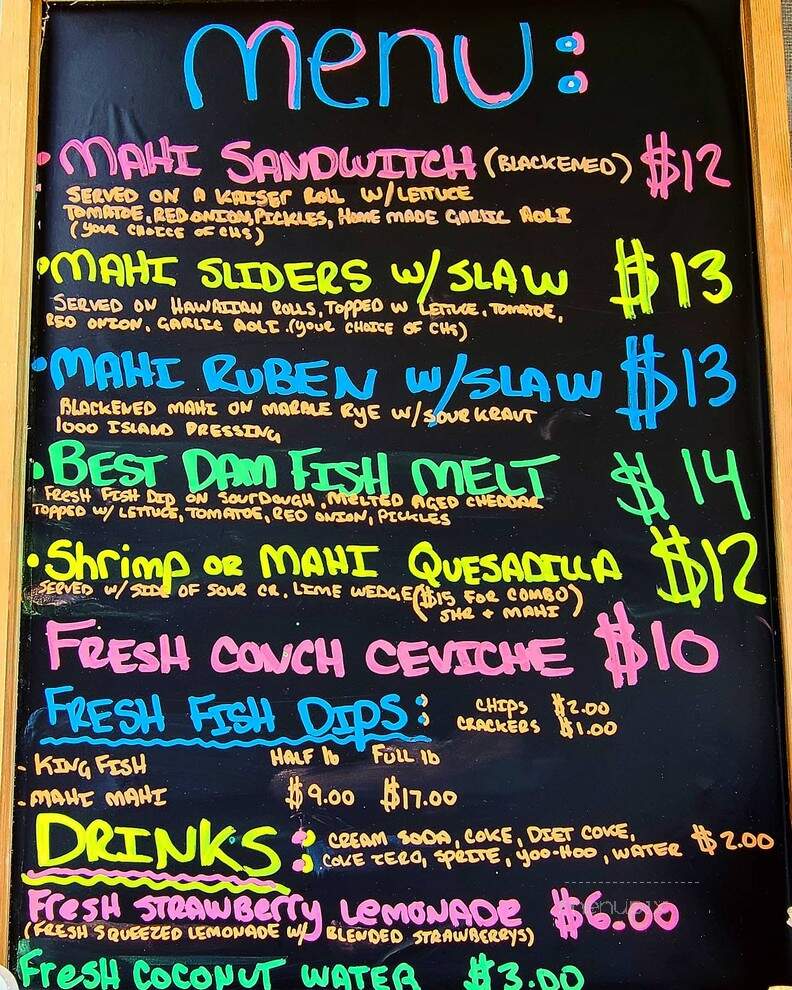 menu:
• MAHI SANDWITCH (BLACKENED) $12
SERVED ON A KAISER ROLL W/LETTUCE
TOMATOE, RED ONION, PICKLES, HOME MADE GARLIC AOLI
(YOUR CHOICE OF CHS)
• MAHI SLIDERS W/SLAW $13
SERVED ON HAWAIIAN ROLLS, TOPPED W LETTUCE, TOMATOE,
RED ONION, GARLIC AOLI. (YOUR CHOICE OF CHS)
• MAHI RUBEN W/SLAW $13
BLACKENED MAHI ON MARBLE RYE W/SOUR KRAUT
1000 ISLAND DRESSING
• BEST DAM FISH MELT $14
FRESH FISH DIP ON SOURDOUGH, MELTED AGED CHEDDAR
TOPPED W/ LETTUCE, TOMATOE, RED ONION, PICKLES
• Shrimp OR MAHI QUESADILLA $12
SERVED W/ SIDE OF SOUR CR. LIME WEDGE ($15 FOR COMBO)
SHR + MAHI
FRESH CONCH CEVICHE $10
FRESH FISH DIPS: CHIPS $2.00
CRACKERS $1.00
- KING FISH HALF lb FULL lb
- MAHI MAHI $9.00 $17.00
DRINKS: CREAM SODA, COKE, DIET COKE,
COKE ZERO, SPRITE, YOO-HOO, WATER $2.00
FresH STRAWBErry LEMONADE $6.00
(FRESH SQUEEZED LEMONADE W/ BLENDED STRAWBERRYS)
FresH COCONUT WATER $3.00